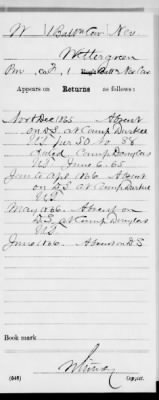 W | 1 Batt'n Cav. | Nev.
Wettergreen
Pvt., Co. 1 Batt. Nev Cav
Appears on Returns as follows:
Nov & Dec 1865 Absent
on D.S. at Camp Durkee
U.T. per SO No 88
dated Camp Douglas
U.T. June 6. 65
Jan to Apl 1866 Absent
on D.S. at Camp Durkee
U.T.
May 1866. Absent on
D.S. at Camp Douglas
U.T.
June 1866. Absent on D.S
Book mark
(546)
Copyist.